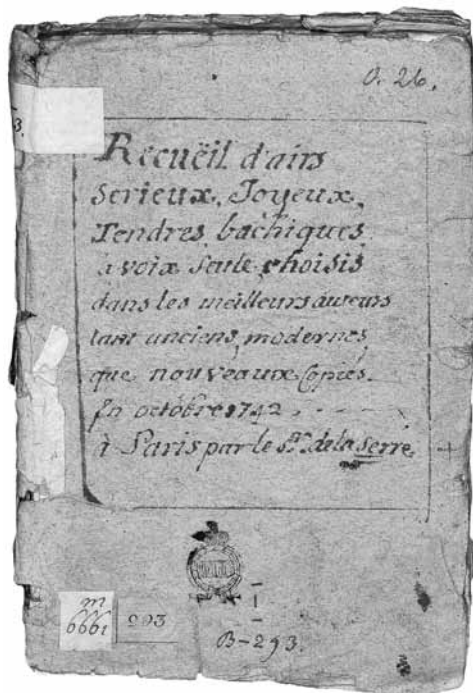 O. 26.
3.
Recuëil d'airs
serieux, Joyeux,
Tendres, bachiques,
à voix seule choisis
dans les meilleurs auteurs
tant anciens, modernes,
que nouveaux Copiés.
En octobre 1742
à Paris par le Sr. de la Serre
m
6661
293
B-293.